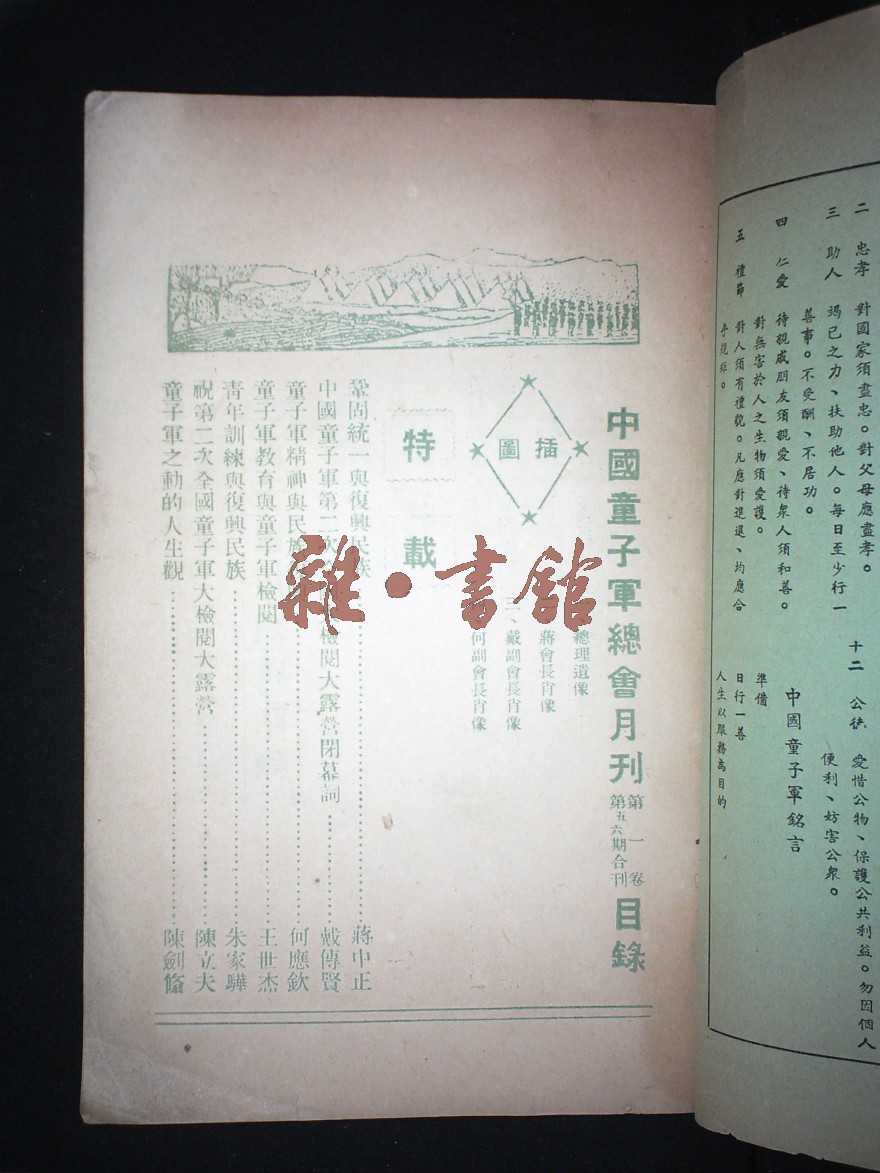 二　忠孝　對國家須盡忠。對父母應盡孝。
三　助人　竭已之力、扶助他人。每日至少行一
善事。不受酬、不居功。
四　仁愛　待親戚朋友須親愛、待衆人須和善。
對無害於人之生物須愛護。
五　禮節　對人須有禮貌。凡應對進退、均應合
十二　公德　愛惜公物、保護公共利益。勿因個人
便利、妨害公衆。
中國童子軍銘言
準備
日行一善
人生以服務為目的
中國童子軍總會月刊 第一卷 第五六期合刊 目錄
插圖
總理遺像
蔣會長肖像
三、戴副會長肖像
何副會長肖像
特載
鞏固統一與復興民族 蔣中正
中國童子軍第二次 檢閱大露營閉幕詞 戴傳賢
童子軍精神與民族 何應欽
童子軍教育與童子軍檢閱 王世杰
青年訓練與復興民族 朱家驊
祝第二次全國童子軍大檢閱大露營 陳立夫
童子軍之動的人生觀 陳劍翛
一
雜·書館